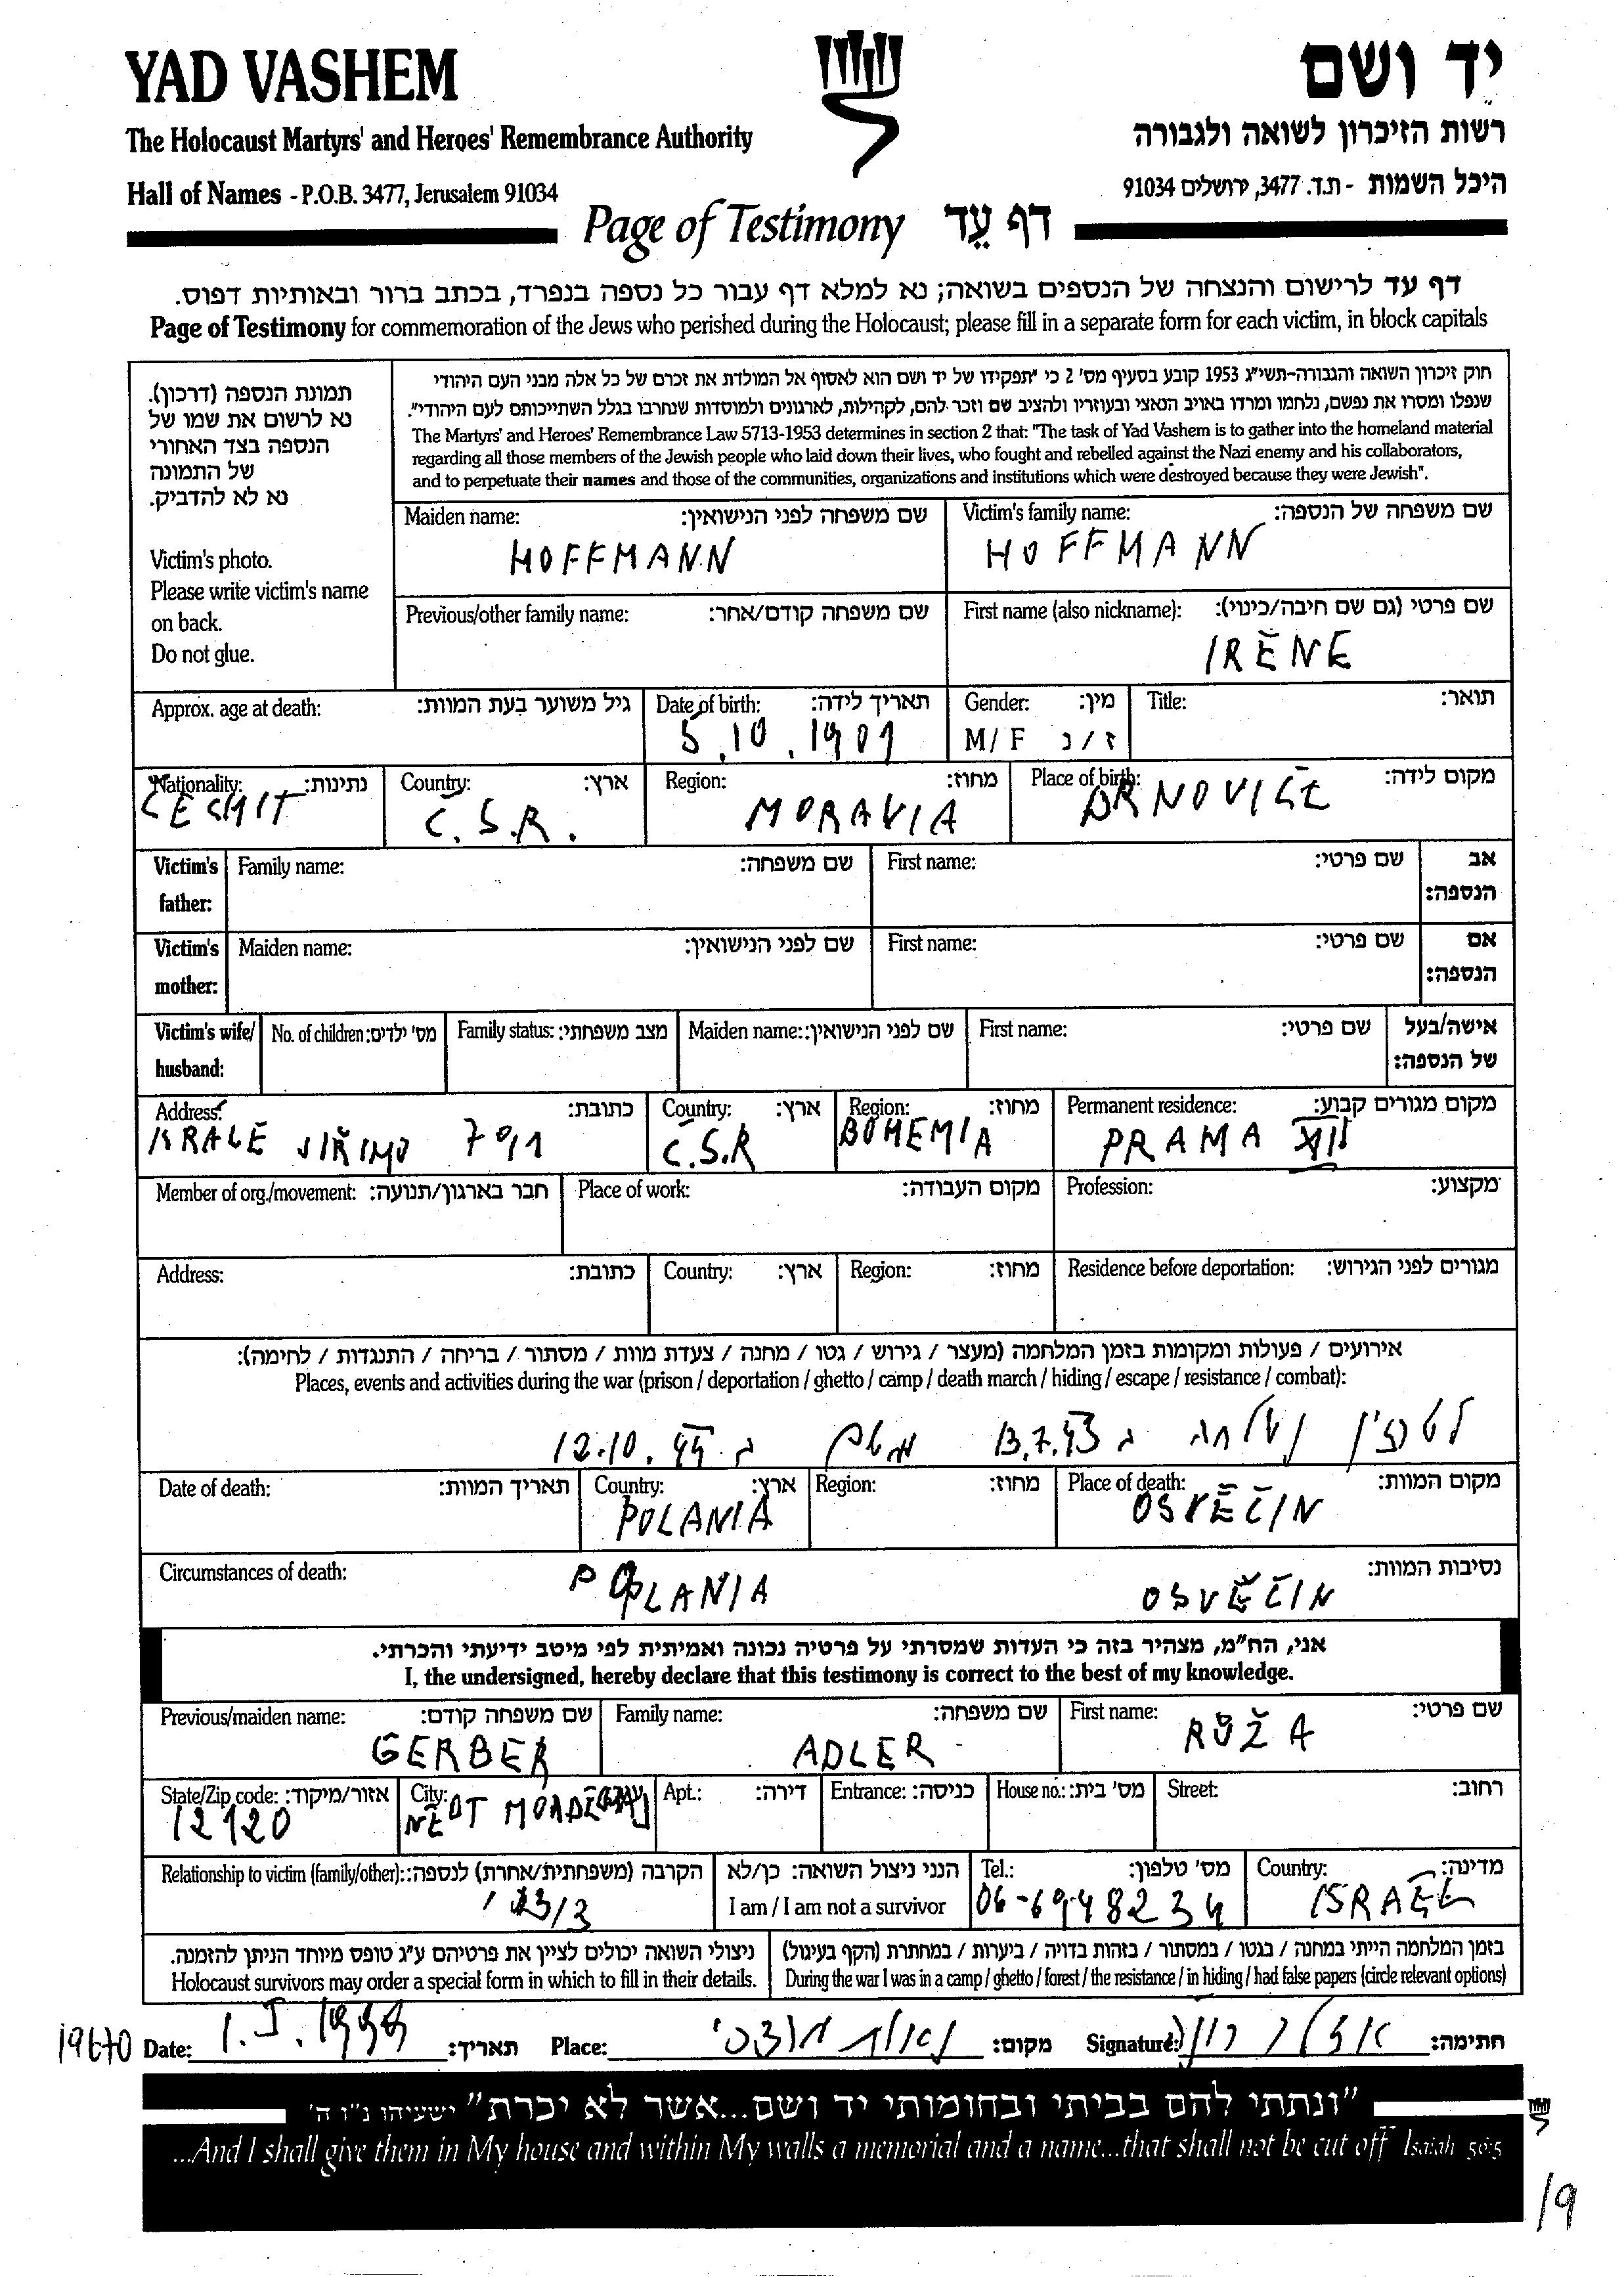 YAD VASHEM
יד ושם
The Holocaust Martyrs' and Heroes' Remembrance Authority
רשות הזיכרון לשואה ולגבורה
Hall of Names - P.O.B. 3477, Jerusalem 91034
היכל השמות - ת.ד. 3477, ירושלים 91034
Page of Testimony דף עֵד
דף עד לרישום והנצחה של הנספים בשואה; נא למלא דף עבור כל נספה בנפרד, בכתב ברור ובאותיות דפוס.
Page of Testimony for commemoration of the Jews who perished during the Holocaust; please fill in a separate form for each victim, in block capitals
תמונת הנספה (דרכון).
נא לרשום את שמו של
הנספה בצד האחורי
של התמונה
נא לא להדביק.
Victim's photo.
Please write victim's name
on back.
Do not glue.
חוק זיכרון השואה והגבורה-תשי"ג 1953 קובע בסעיף מס' 2 כי "תפקידו של יד ושם הוא לאסוף אל המולדת את זכרם של כל אלה מבני העם היהודי
שנפלו ומסרו את נפשם, נלחמו ומרדו באויב הנאצי ובעוזריו ולהציב שם וזכר להם, לקהילות, לארגונים ולמוסדות שנחרבו בגלל השתייכותם לעם היהודי".
The Martyrs' and Heroes' Remembrance Law 5713-1953 determines in section 2 that: "The task of Yad Vashem is to gather into the homeland material
regarding all those members of the Jewish people who laid down their lives, who fought and rebelled against the Nazi enemy and his collaborators,
and to perpetuate their names and those of the communities, organizations and institutions which were destroyed because they were Jewish".
Maiden name: שם משפחה לפני הנישואין:
HOFFMANN
Victim's family name: שם משפחה של הנספה:
HOFFMANN
Previous/other family name: שם משפחה קודם/אחר:
First name (also nickname): שם פרטי (גם שם חיבה/כינוי):
IRENE
Approx. age at death: גיל משוער בעת המוות:
Date of birth: תאריך לידה:
5.10.1901
Gender: מין:
M/F ז/נ
Title: תואר:
Nationality: נתינות:
Country: ארץ:
Č.S.R.
Region: מחוז:
MORAVIA
Place of birth: מקום לידה:
DRNOVICE
Victim's father: Family name: שם משפחה: First name: שם פרטי: אב הנספה:
Victim's mother: Maiden name: שם לפני הנישואין: First name: שם פרטי: אם הנספה:
Victim's wife/husband: No. of children: מס' ילדים: Family status: מצב משפחתי: Maiden name: שם לפני הנישואין: First name: שם פרטי: אישה/בעל של הנספה:
Address: כתובת:
KRALE JIŘIHO
Country: ארץ:
Č.S.R
Region: מחוז:
BOHEMIA
Permanent residence: מקום מגורים קבוע:
PRAHA XII
Member of org./movement: חבר בארגון/תנועה: Place of work: מקום העבודה: Profession: מקצוע:
Address: כתובת: Country: ארץ: Region: מחוז: Residence before deportation: מגורים לפני הגירוש:
אירועים / פעולות ומקומות בזמן המלחמה (מעצר / גירוש / גטו / מחנה / צעדת מוות / מסתור / בריחה / התנגדות / לחימה):
Places, events and activities during the war (prison / deportation / ghetto / camp / death march / hiding / escape / resistance / combat):
ב 13.7.43 ב 12.10.44
Date of death: תאריך המוות:
Country: ארץ:
POLANIA
Region: מחוז:
Place of death: מקום המוות:
OSVĚČIN
Circumstances of death: נסיבות המוות:
POLANIA OSVĚČIN
אני, הח"מ, מצהיר בזה כי העדות שמסרתי על פרטיה נכונה ואמיתית לפי מיטב ידיעתי והכרתי.
I, the undersigned, hereby declare that this testimony is correct to the best of my knowledge.
Previous/maiden name: שם משפחה קודם:
GERBER
Family name: שם משפחה:
ADLER
First name: שם פרטי:
RŮŽA
State/Zip code: אזור/מיקוד:
12120
City: עיר:
NEOT
Apt.: דירה: Entrance: כניסה: House no.: מס' בית: Street: רחוב:
Relationship to victim (family/other): הקרבה (משפחתית/אחרת) לנספה:
הנני ניצול השואה: כן/לא
I am / I am not a survivor
Tel.: מס' טלפון:
06-6948234
Country: מדינה:
ISRAEL
ניצולי השואה יכולים לציין את פרטיהם ע"ג טופס מיוחד הניתן להזמנה.
Holocaust survivors may order a special form in which to fill in their details.
בזמן המלחמה הייתי במחנה / בגטו / במסתור / בזהות בדויה / ביערות / במחתרת (הקף בעיגול)
During the war I was in a camp / ghetto / forest / the resistance / in hiding / had false papers (circle relevant options)
Date: 1.I.1999 תאריך: Place: נאות מרדכי מקום: Signature: אדלר חתימה:
"ונתתי להם בביתי ובחומותי יד ושם...אשר לא יכרת" ישעיהו נ"ו ה'
...And I shall give them in My house and within My walls a memorial and a name...that shall not be cut off Isaiah 56:5
19